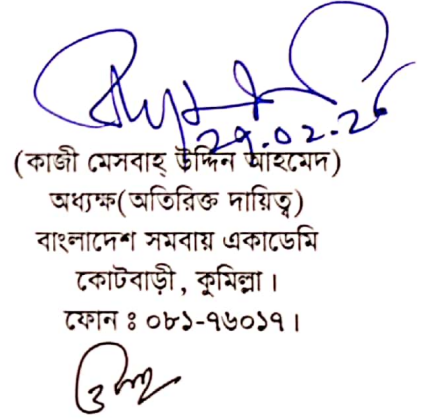 ২৭.০২.২৬
(কাজী মেসবাহ্ উদ্দিন আহমেদ)
অধ্যক্ষ(অতিরিক্ত দায়িত্ব)
বাংলাদেশ সমবায় একাডেমি
কোটবাড়ী, কুমিল্লা।
ফোন ঃ ০৮১-৭৬০১৭।